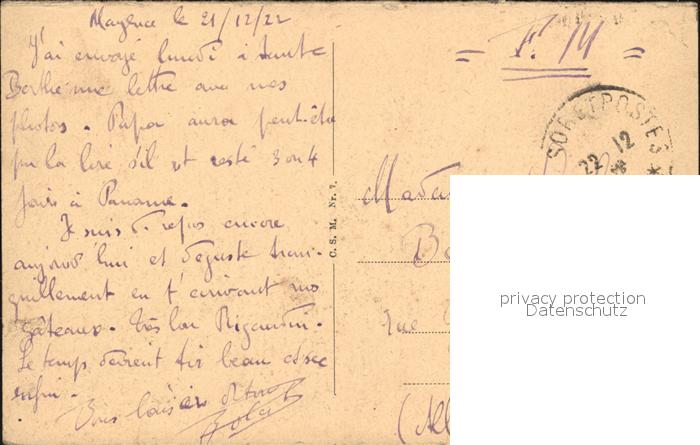 Mayence le 21/12/22
J'ai envoyé lundi à tante
Berthe une lettre avec mes
photos. Papa aura peut-être
pu la lire s'il est resté 3 ou 4
jours à Paname.
Je suis de repos encore
aujourd'hui et déguste tran-
quillement en t'écrivant mes
gâteaux. Très bon Rigaudin.
Le temps devient beau et sec
enfin.
Bons baisers
= F. M =
SOR ET POSTES *
22 12
C. S. M. Nr. 7.
Mada
Be
rue
(All
privacy protection
Datenschutz